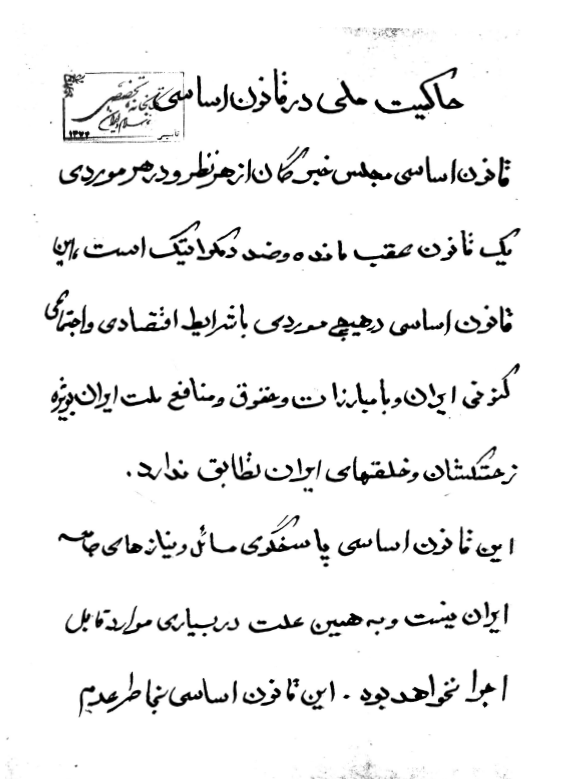 حاکمیت ملی در قانون اساسی
کتابخانه تخصصی
۱۳۷۶
قانون اساسی مجلس خبرگان از هر نظر و در هر موردی
یک قانون عقب مانده و ضد دمکراتیک است، این
قانون اساسی در هیچ موردی با شرایط اقتصادی و اجتماعی
کنونی ایران و با مبارزات و حقوق و منافع ملت ایران بویژه
زحتمکشان و خلقهای ایران تطابق ندارد.
این قانون اساسی پاسخگوی مسائل و نیازهای جامعه
ایران نیست و به همین علت در بسیاری موارد قابل
اجرا نخواهد بود. این قانون اساسی بخاطر عدم